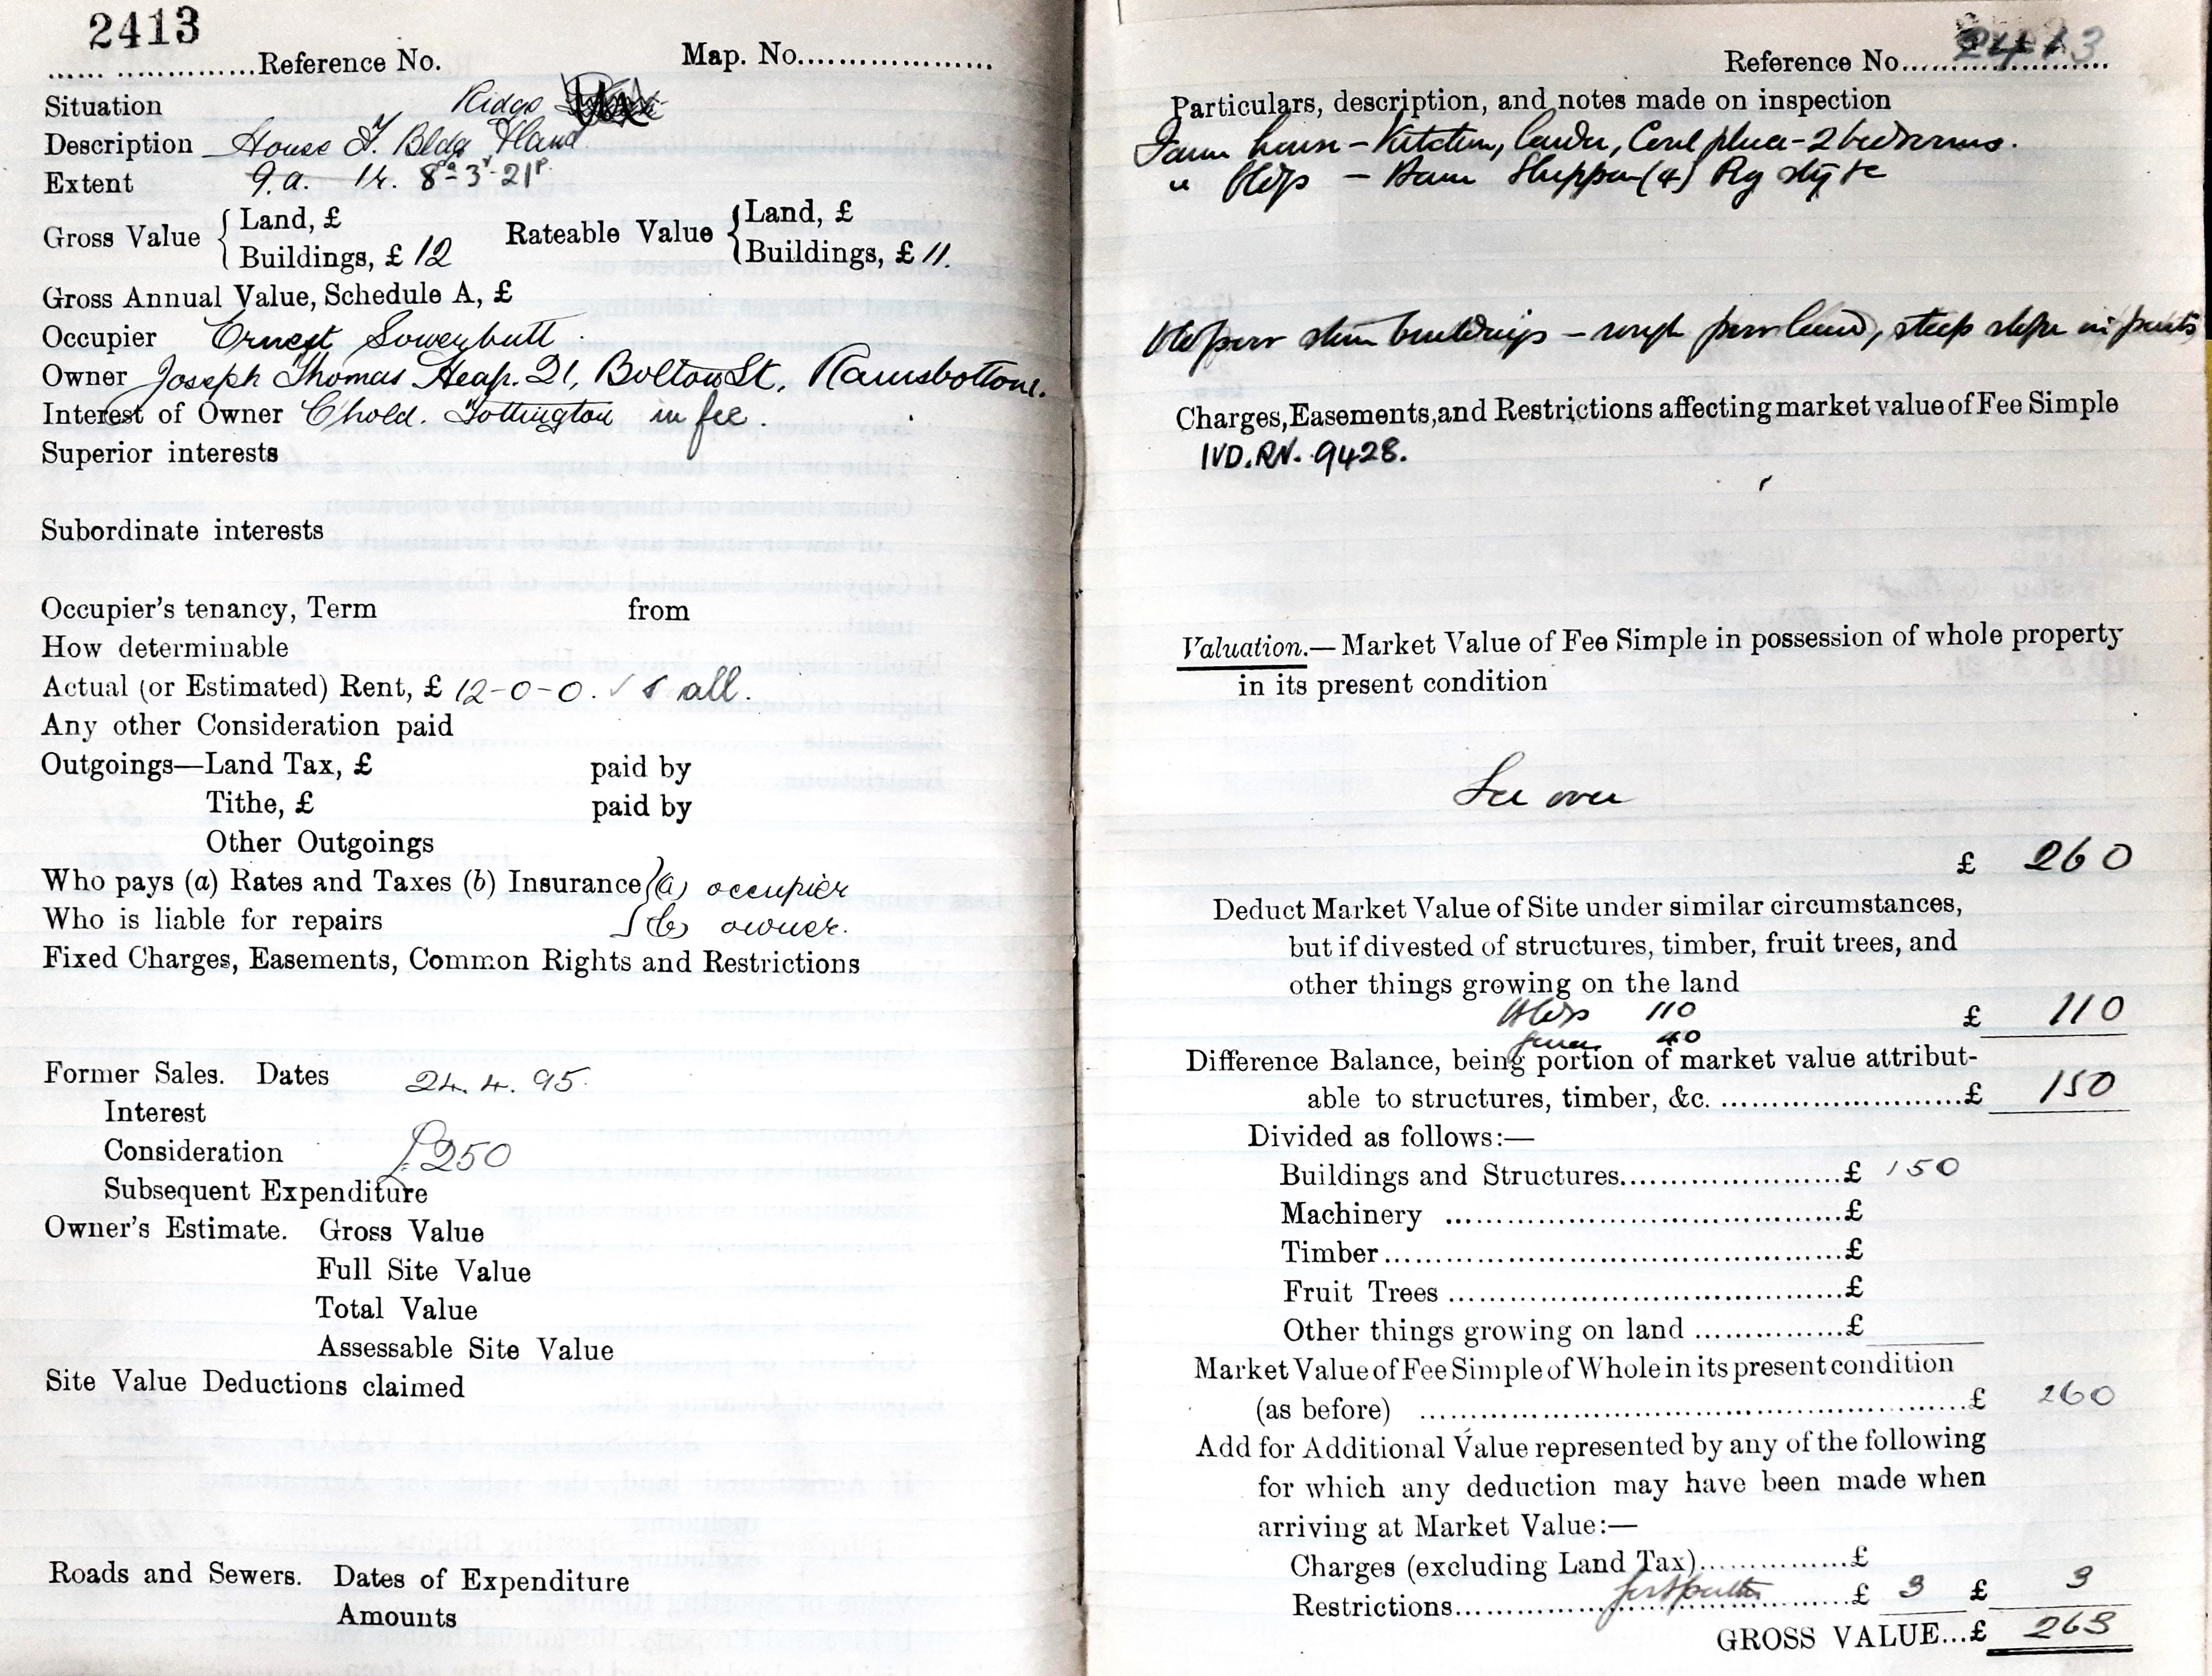 2413
...... ..............Reference No. Map. No...................
Situation Ridge
Description House F. Bldg & land
Extent 9.a. 1r. 8a 3r 21p.
Gross Value { Land, £ Rateable Value { Land, £
Buildings, £ 12 Buildings, £ 11.
Gross Annual Value, Schedule A, £
Occupier Ernest Sowerbutt
Owner Joseph Thomas Heap. 21, Bolton St, Ramsbottom.
Interest of Owner C'hold. Tottington in fee.
Superior interests
Subordinate interests
Occupier's tenancy, Term from
How determinable
Actual (or Estimated) Rent, £ 12-0-0. ✓ all.
Any other Consideration paid
Outgoings—Land Tax, £ paid by
Tithe, £ paid by
Other Outgoings
Who pays (a) Rates and Taxes (b) Insurance } (a) occupier
Who is liable for repairs } (b) owner.
Fixed Charges, Easements, Common Rights and Restrictions
Former Sales. Dates 24. 4. 95.
Interest
Consideration £250
Subsequent Expenditure
Owner's Estimate. Gross Value
Full Site Value
Total Value
Assessable Site Value
Site Value Deductions claimed
Roads and Sewers. Dates of Expenditure
Amounts
Reference No. 2413
Particulars, description, and notes made on inspection
Farm house – Kitchen, larder, Coal place – 2 bedrooms.
" Bldgs – Barn Shippon (4) Pig stye
Old poor stone buildings – rough poor land, steep slope in parts
Charges, Easements, and Restrictions affecting market value of Fee Simple
IVD. RV. 9428.
Valuation.— Market Value of Fee Simple in possession of whole property
in its present condition
See over
£ 260
Deduct Market Value of Site under similar circumstances,
but if divested of structures, timber, fruit trees, and
other things growing on the land
Bldgs 110 £ 110
40
Difference Balance, being portion of market value attribut-
able to structures, timber, &c. ..........................£ 150
Divided as follows:—
Buildings and Structures........................£ 150
Machinery ...........................................£
Timber..................................................£
Fruit Trees ...........................................£
Other things growing on land ................£
Market Value of Fee Simple of Whole in its present condition
(as before) ..........................................................£ 260
Add for Additional Value represented by any of the following
for which any deduction may have been made when
arriving at Market Value:—
Charges (excluding Land Tax)................£
Restrictions.... footpaths ....£ 3 £ 3
GROSS VALUE...£ 263